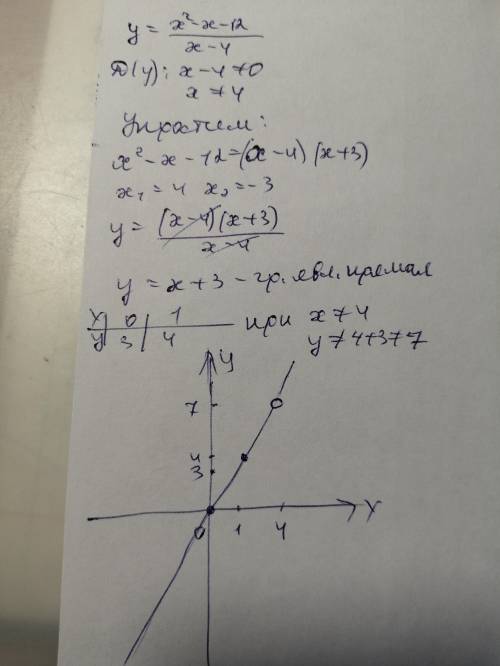 y = x²-x-12 / x-4
D(y): x-4≠0
x≠4
Упростим:
x²-x-12=(x-4)(x+3)
x₁=4 x₂=-3
y = (x-4)(x+3) / x-4
y = x+3 - гр. явл. прямая
x 0 1 при x≠4
y 3 4 y≠4+3≠7
y
7
4
3
0 1 4 x